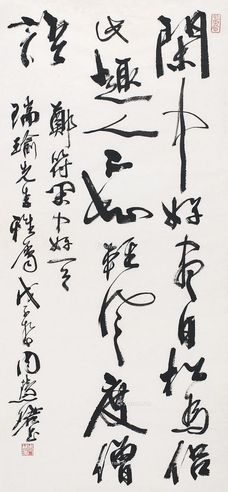 閑中好盡日松為侶
此趣人不知輕風度僧
語
鄭符閑中好
瑞瑜先生雅屬戊子周慧珺書